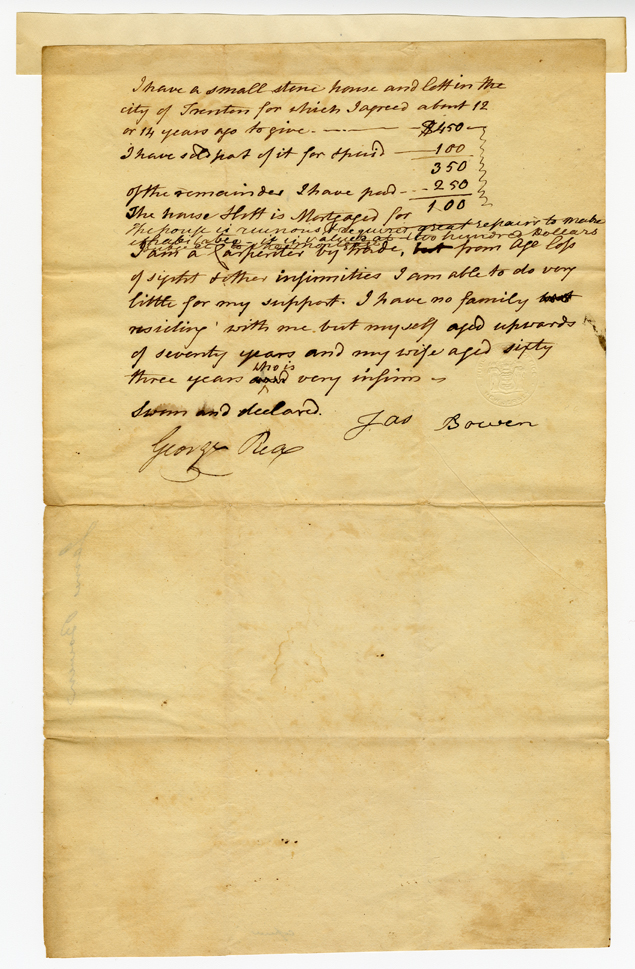 I have a small stone house and lott in the
city of Trenton for which I agreed about 12
or 14 years ago to give. $450
I have sold part of it for & paid 100
350
of the remainder I have paid 250
The house & lott is Mortgaged for 100
The house is ruinous & requires great repairs to make
it habitable it is valued at two hundred Dollars
I am a Carpenter by trade, but from Age loss
of sight & other infirmities I am able to do very
little for my support. I have no family
residing with me but myself aged upwards
of seventy years and my wife aged sixty
three years who is very infirm
Sworn and declared.
Jas Bowen
George Rea
James Bowen